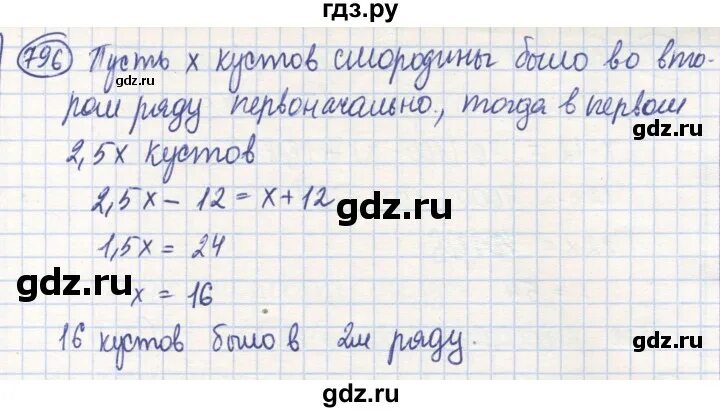 гдз.ру
796 Пусть x кустов смородины было во вто-
gdz.ru
ром ряду первоначально, тогда в первом
gdz.ru
2,5x кустов
2,5x - 12 = x + 12
gdz.ru
1,5x = 24
gdz.ru
x = 16
16 кустов было в 2м ряду.
gdz.ru
gdz.ru